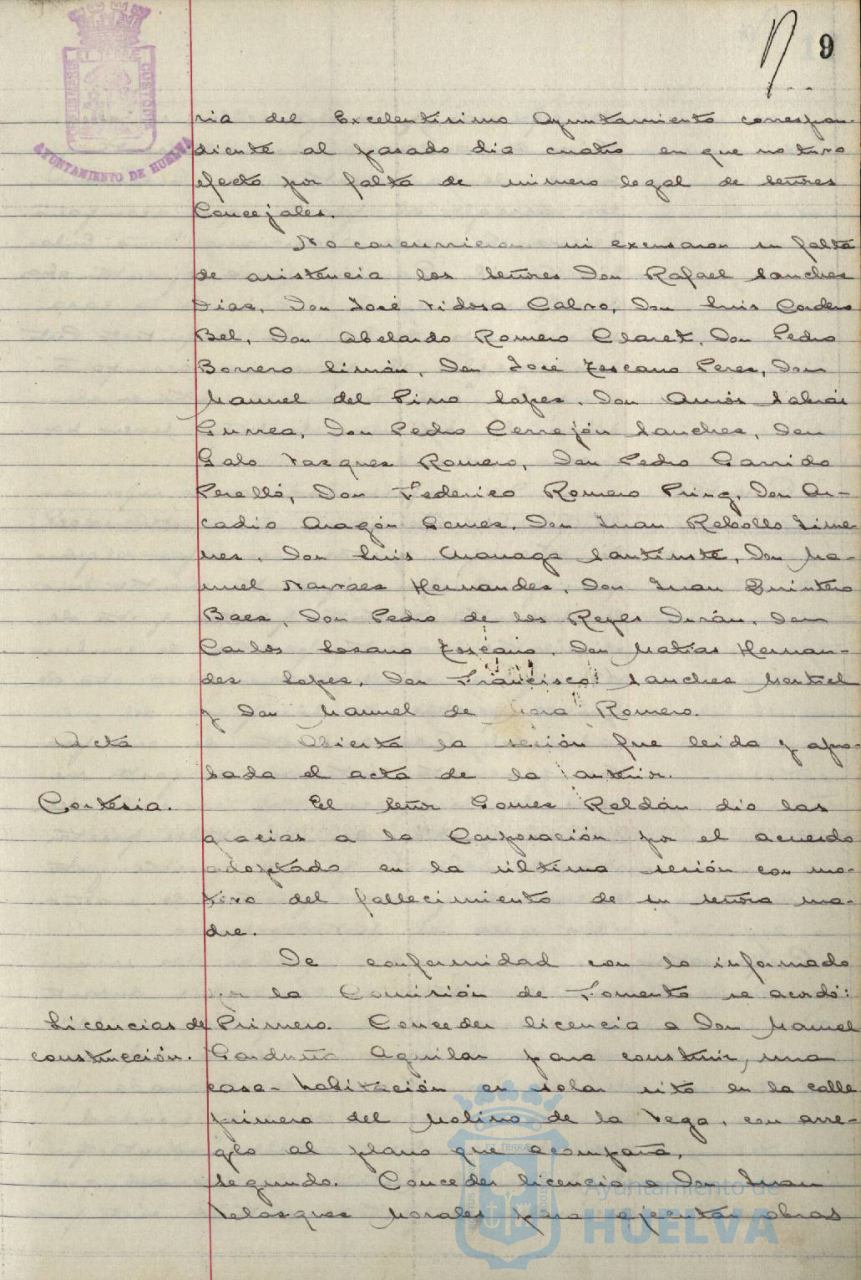 9
AYUNTAMIENTO DE HUELVA
ria del Excelentísimo Ayuntamiento correspon-
diente al pasado dia cuatro en que no tuvo
efecto por falta de número legal de señores
Concejales.
No concurrieron ni excusaron su falta
de asistencia los señores Don Rafael Sanches
Dias, Don José Vidosa Calvo, Don Luis Cordero
Bel, Don Abelardo Romero Claret, Don Pedro
Borrero Limón, Don José Toscano Peres, Don
Manuel del Pino Lopes, Don Amós Sabrás
Gurrea, Don Pedro Cerrejón Sanches, Don
Galo Vasques Romero, Don Pedro Garrido
Perelló, Don Federico Romero Pring, Don Ar-
cadio Aragón Gomes, Don Juan Rebollo Jime-
nes, Don Luis Don Ma-
nuel Narvaes Hernandes, Don Juan Quintero
Baes, Don Pedro de los Reyes Durán, Don
Carlos Losano Toscano, Don Matías Hernan-
des Lopes, Don Francisco Sanches
y Don Manuel de Mora Romero.
Acta
Abierta la sesión fue leida y apro-
bada el acta de la anterior.
Cortesia.
El señor Gomes Roldán dio las
gracias a la Corporación por el acuerdo
adoptado en la última sesión con mo-
tivo del fallecimiento de su señora ma-
dre.
De conformidad con lo informado
por la Comisión de Fomento se acordó:
Licencias de
construcción.
Primero. Conceder licencia a Don Manuel
Garduño Aguilar para construir, una
casa-habitación en solar sito en la calle
primera del Molino de la Vega, con arre-
glo al plano que acompaña,
Segundo. Conceder licencia a Don Juan
Velasques Morales para ejecutar obras
Ayuntamiento de
HUELVA